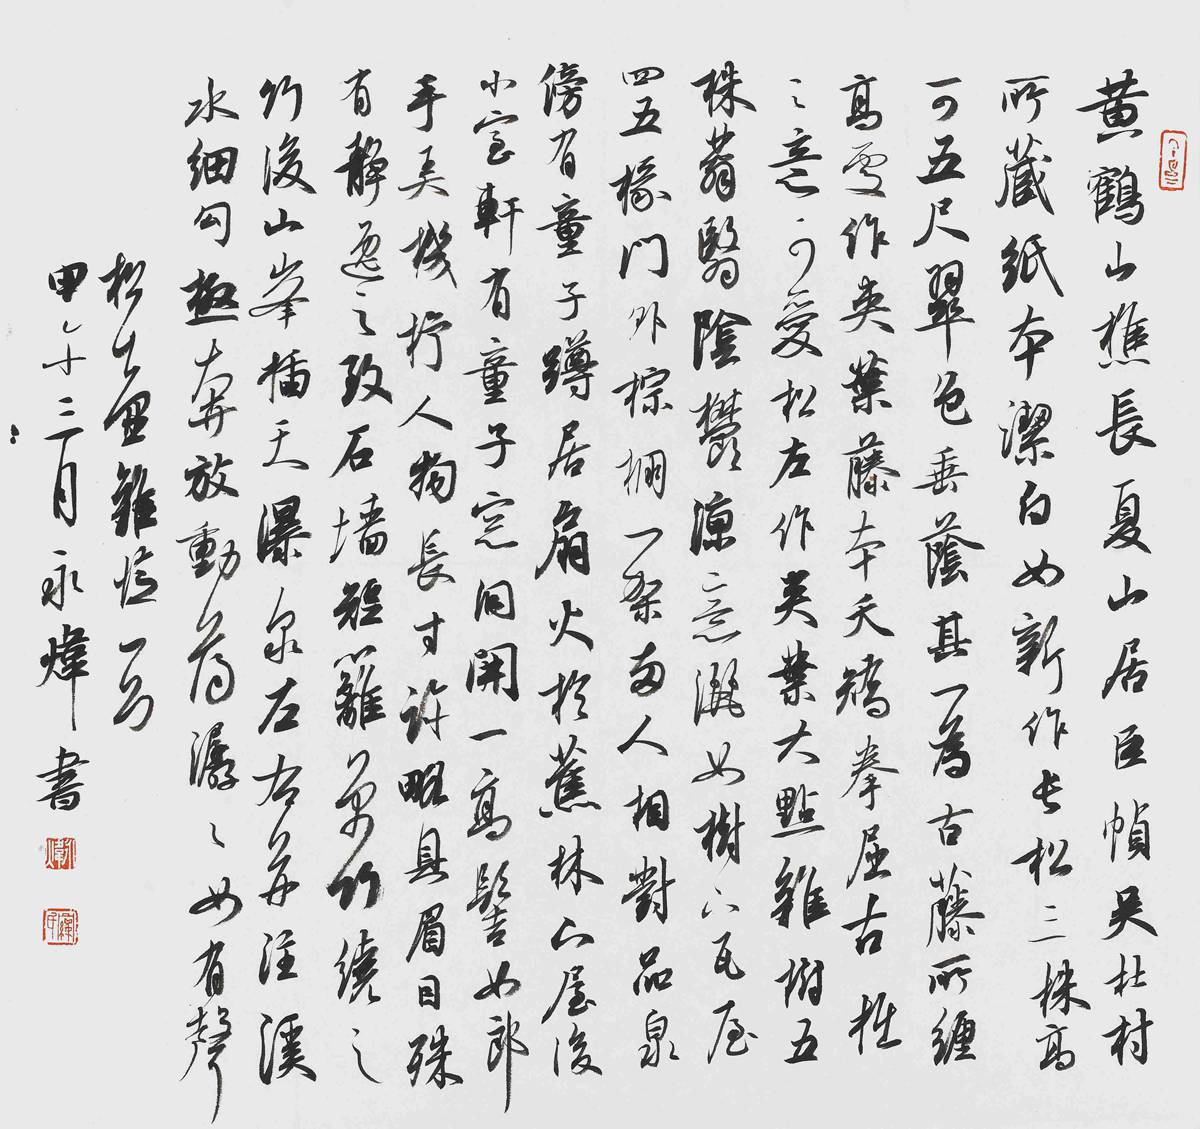 黄鶴山樵長夏山居巨幀吴杜村
所藏紙本潔白如新作長松三株高
可五尺翠色垂蔭其一為古藤所纏
高處作夾葉藤本夭矯拳屈古拙
之意可愛松左作夾葉大點雜樹五
株蓊翳陰鬱涼意灑如樹下瓦屋
四五椽門外棕棚一架兩人相對品泉
傍有童子蹲居扇火於蕉林下屋後
小室軒有童子窓洞開一高髻女郎
手弄機杼人物長寸許眉目
略具殊有静逸之致石墙短籬萬竹繞之
竹後山峯插天瀑泉左右并注溪
水細勾極奔放動蕩潺々如有聲
松壺畫雜憶一則
甲午三月永煒書